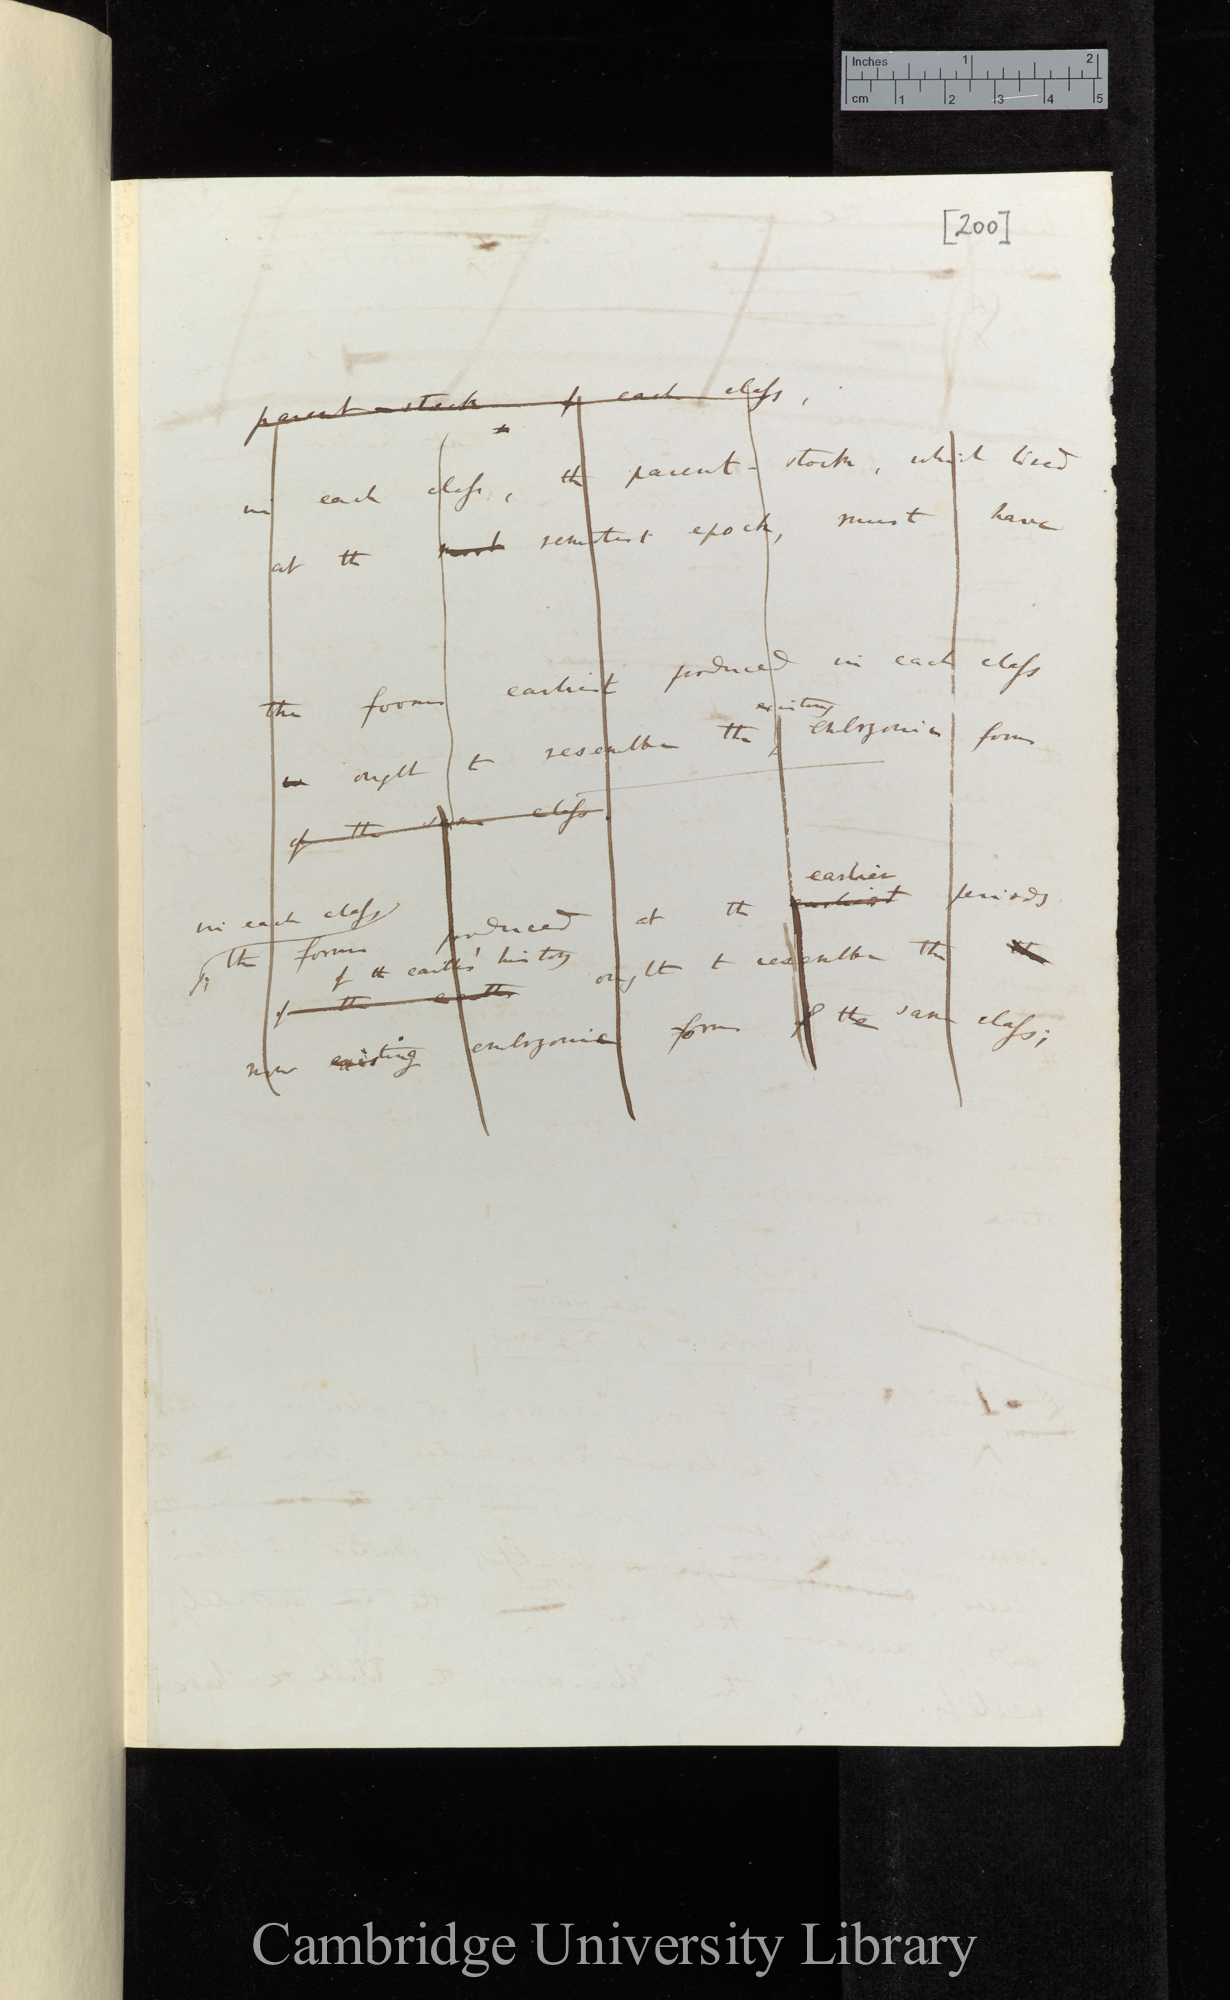 Inches 1 2
cm 1 2 3 4 5
[200]
parent-stock of each class,
in each class, the parent-stock, which lived
at the most remotest epoch, must have
the forms earliest produced in each class
existing
ought to resemble the embryonic forms
of the same class.
earlier
in each class
the forms produced at the earliest periods
of the earth's history
of the earth ought to resemble the the
now existing embryonic forms of the same class;
Cambridge University Library